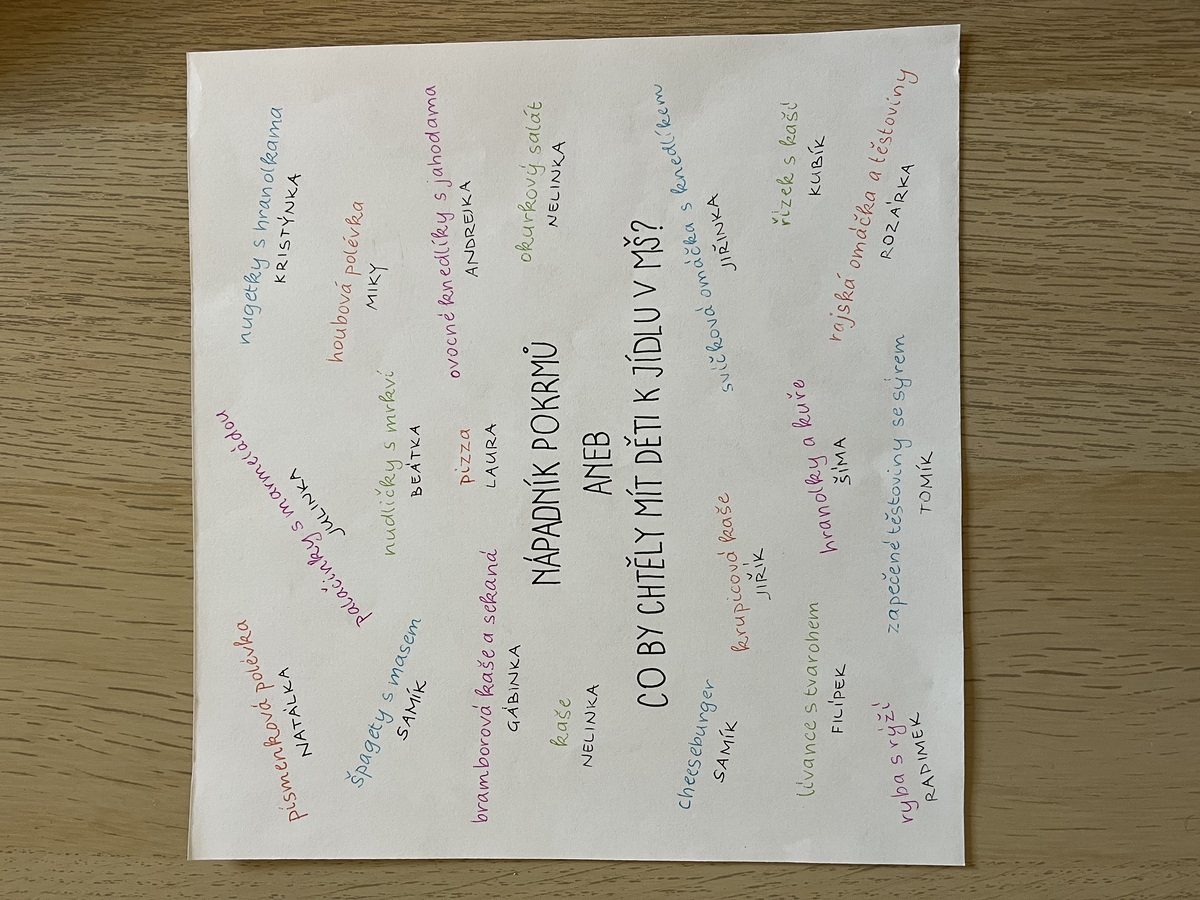 písmenková polévka
NATÁLKA
palačinky s marmeládou
JULINKA
nugetky s hranolkama
KRISTÝNKA
špagety s masem
SAMÍK
nudličky s mrkví
BEÁTKA
houbová polévka
MIKY
bramborová kaše a sekaná
GÁBINKA
pizza
LAURA
ovocné knedlíky s jahodama
ANDREJKA
kaše
NELINKA
okurkový salát
NELINKA
NÁPADNÍK POKRMŮ
ANEB
CO BY CHTĚLY MÍT DĚTI K JÍDLU V MŠ?
cheeseburger
SAMÍK
krupicová kaše
JIŘÍK
svíčková omáčka s knedlíkem
JIŘINKA
lívance s tvarohem
FILÍPEK
hranolky a kuře
ŠÍMA
řízek s kaší
KUBÍK
ryba s rýží
RADIMEK
zapečené těstoviny se sýrem
TOMÍK
rajská omáčka a těstoviny
ROZÁRKA